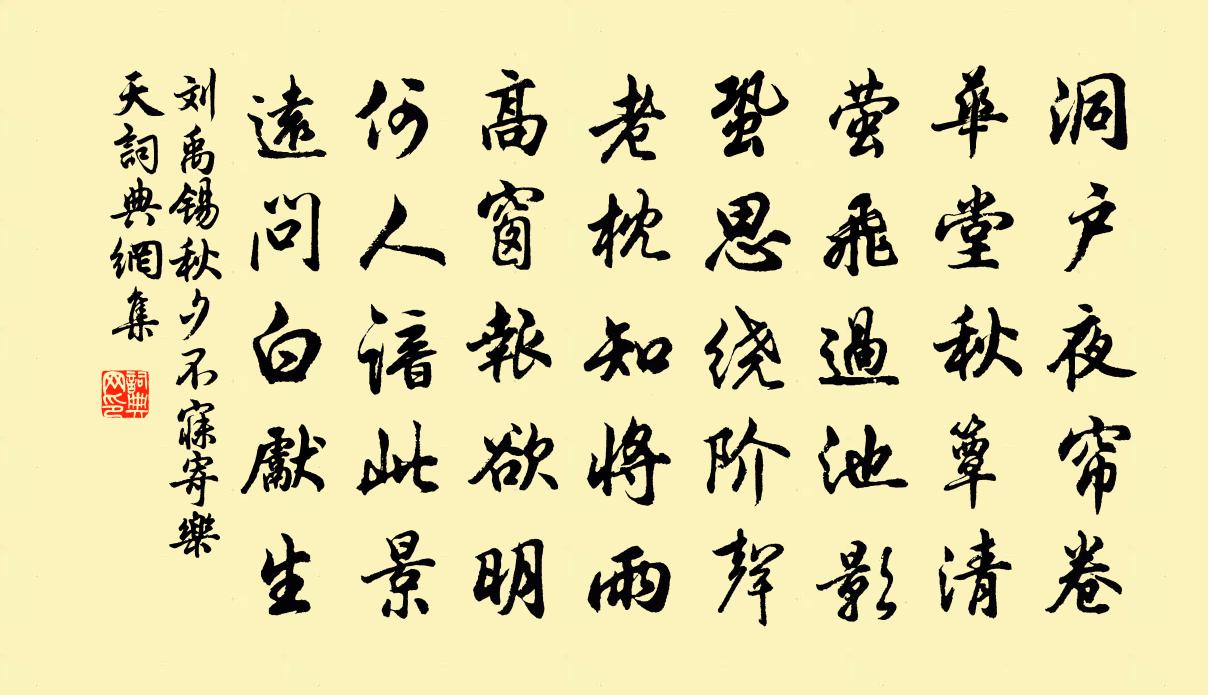 洞户夜帘卷
華堂秋簟清
萤飛過池影
蛩思绕阶聲
老枕知將雨
高窗報欲明
何人諳此景
遠問白獻生
刘禹锡秋夕不寐寄樂
天詞典網集
詞典网印